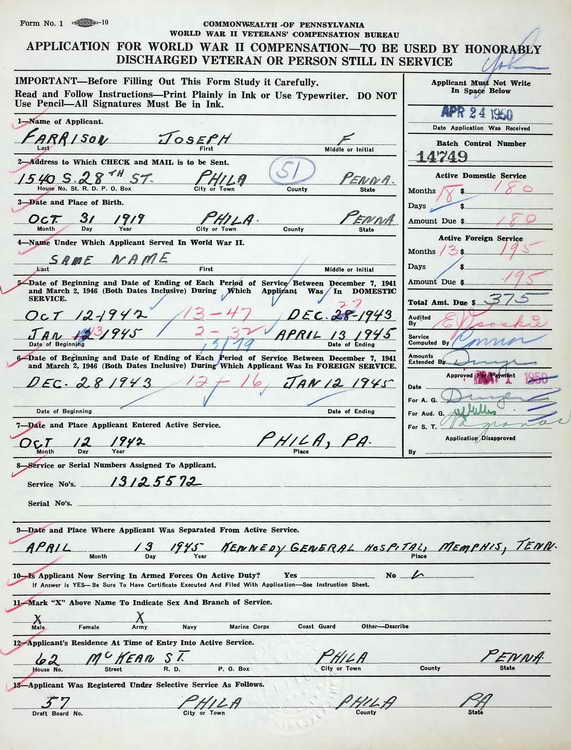 Form No. 1 —10
COMMONWEALTH OF PENNSYLVANIA
WORLD WAR II VETERANS' COMPENSATION BUREAU
APPLICATION FOR WORLD WAR II COMPENSATION—TO BE USED BY HONORABLY
DISCHARGED VETERAN OR PERSON STILL IN SERVICE
IMPORTANT—Before Filling Out This Form Study it Carefully.
Read and Follow Instructions—Print Plainly in Ink or Use Typewriter. DO NOT
Use Pencil—All Signatures Must Be in Ink.
Applicant Must Not Write
In Space Below
APR 24 1950
Date Application Was Received
Batch Control Number
14749
Active Domestic Service
Months 18 $ 180
Days $
Amount Due $ 180
Active Foreign Service
Months 13 $ 195
Days $
Amount Due $ 195
Total Amt. Due $ 375
Audited
By
Service
Computed By Connor
Amounts
Extended By
Approved For Payment
Date MAY 1 1950
For A. G.
For Aud. G.
For S. T.
Application Disapproved
By
1—Name of Applicant.
FARRISON JOSEPH F
Last First Middle or Initial
2—Address to Which CHECK and MAIL is to be Sent.
1540 S. 28TH ST. PHILA 51 PENNA.
House No. St. R. D. P. O. Box City or Town County State
3—Date and Place of Birth.
OCT 31 1919 PHILA. PENNA
Month Day Year City or Town State
4—Name Under Which Applicant Served In World War II.
SAME NAME
Last First Middle or Initial
5—Date of Beginning and Date of Ending of Each Period of Service Between December 7, 1941
and March 2, 1946 (Both Dates Inclusive) During Which Applicant Was In DOMESTIC
SERVICE.
OCT 12-1942 13-47 DEC. 28-1943 27
JAN 12 1945 13 2-32 APRIL 13 1945
Date of Beginning 15/79 Date of Ending
6—Date of Beginning and Date of Ending of Each Period of Service Between December 7, 1941
and March 2, 1946 (Both Dates Inclusive) During Which Applicant Was In FOREIGN SERVICE.
DEC. 28 1943 12-16 JAN 12 1945
Date of Beginning Date of Ending
7—Date and Place Applicant Entered Active Service.
OCT 12 1942 PHILA, PA.
Month Day Year Place
8—Service or Serial Numbers Assigned To Applicant.
Service No's. 13125572
Serial No's.
9—Date and Place Where Applicant Was Separated From Active Service.
APRIL 13 1945 KENNEDY GENERAL HOSPITAL, MEMPHIS, TENN.
Month Day Year Place
10—Is Applicant Now Serving In Armed Forces On Active Duty? Yes No ✓
If Answer is YES—Be Sure To Have Certificate Executed And Filed With Application—See Instruction Sheet.
11—Mark "X" Above Name To Indicate Sex And Branch of Service.
X X
Male Female Army Navy Marine Corps Coast Guard Other—Describe
12—Applicant's Residence At Time of Entry Into Active Service.
62 McKEAN ST. PHILA PENNA.
House No. Street R. D. P. O. Box City or Town County State
13—Applicant Was Registered Under Selective Service As Follows.
57 PHILA PHILA PA
Draft Board No. City or Town County State